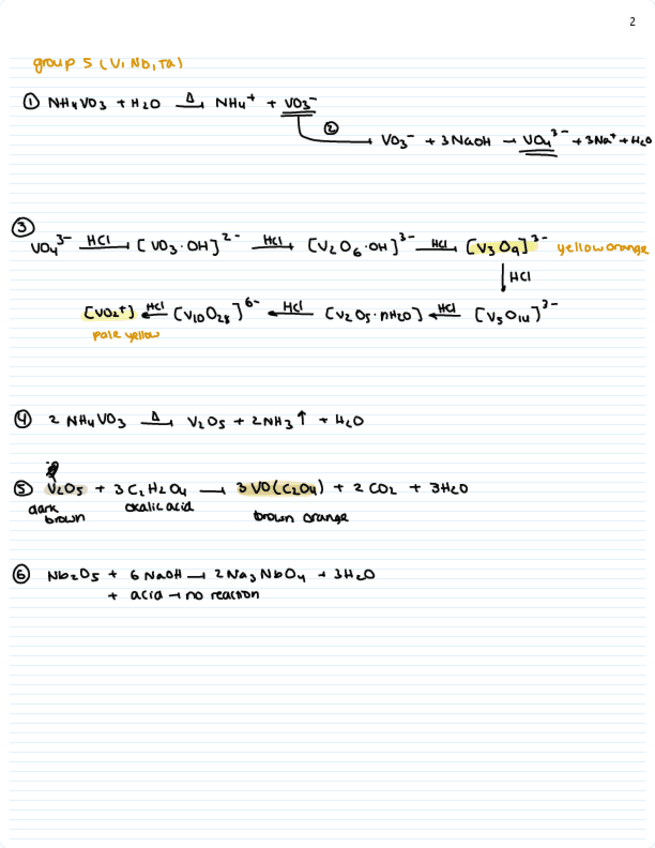 2
group 5 (V, Nb, Ta)
① NH₄VO₃ + H₂O —Δ→ NH₄⁺ + VO₃⁻
② → VO₃⁻ + 3NaOH → VO₄³⁻ + 3Na⁺ + H₂O
③
VO₄³⁻ —HCl→ [VO₃·OH]²⁻ —HCl→ [V₂O₆·OH]³⁻ —HCl→ [V₃O₉]³⁻ yellow orange
↓ HCl
[VO₂⁺] ←HCl— [V₁₀O₂₈]⁶⁻ ←HCl— [V₂O₅·nH₂O] ←HCl— [V₅O₁₄]³⁻
pale yellow
④ 2 NH₄VO₃ —Δ→ V₂O₅ + 2NH₃↑ + H₂O
⑤ V₂O₅ + 3C₂H₂O₄ → 3VO(C₂O₄) + 2CO₂ + 3H₂O
dark brown oxalic acid brown orange
⑥ Nb₂O₅ + 6NaOH → 2Na₃NbO₄ + 3H₂O
+ acid → no reaction